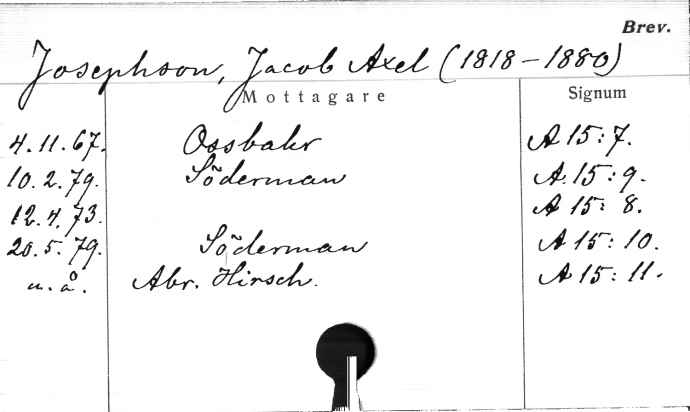 Brev.
Josephson, Jacob Axel (1818-1880)
Mottagare Signum
4.11.67. Ossbahr A 15:7.
10.2.79. Söderman A.15:9.
12.4.73. A 15: 8.
20.5.79. Söderman A 15: 10.
u.å. Abr. Hirsch. A 15: 11.